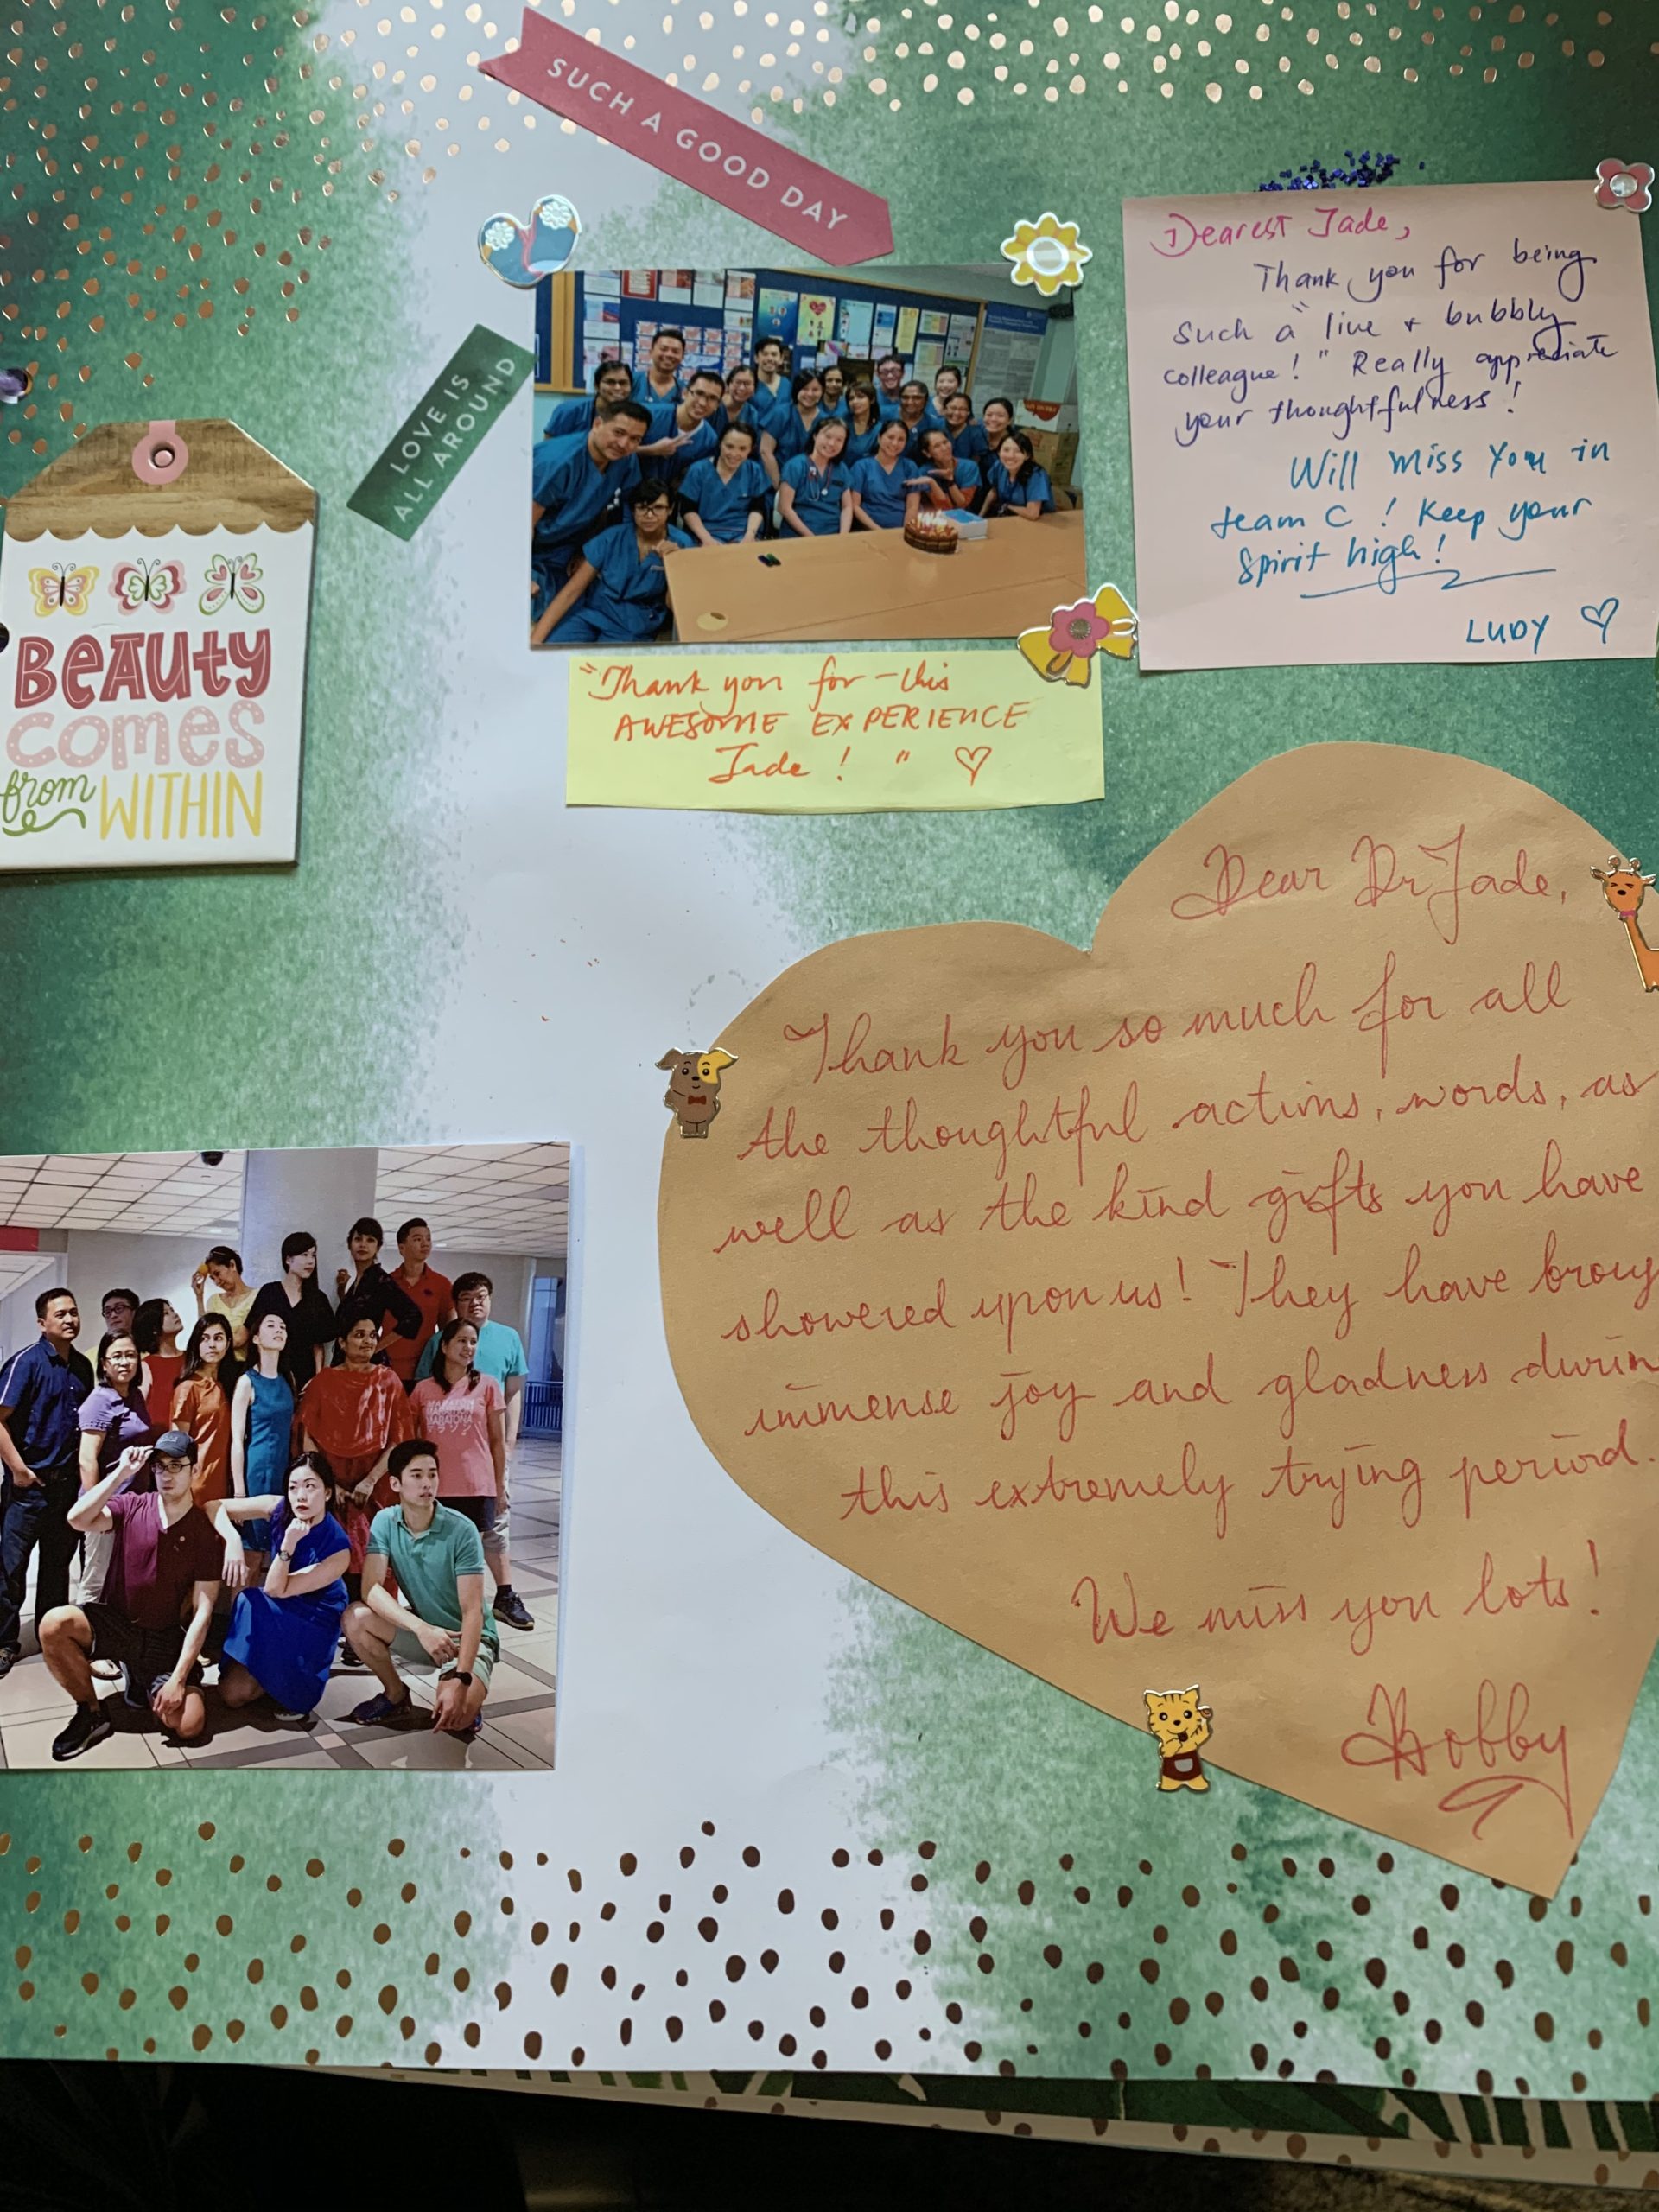 SUCH A GOOD DAY
LOVE IS
ALL AROUND
Dearest Jade,
Thank you for being
such a "live & bubbly
colleague!" Really appreciate
your thoughtfulness!
Will miss you in
team C! Keep your
Spirit high!
LUDY ♡
BEAUTY
COMES
from WITHIN
"Thank you for this
AWESOME EXPERIENCE
Jade! " ♡
Dear Dr Jade,
Thank you so much for all
the thoughtful actions, words, as
well as the kind gifts you have
showered upon us! They have
immense joy and gladness
this extremely trying period.
We miss you lots!
Bobby